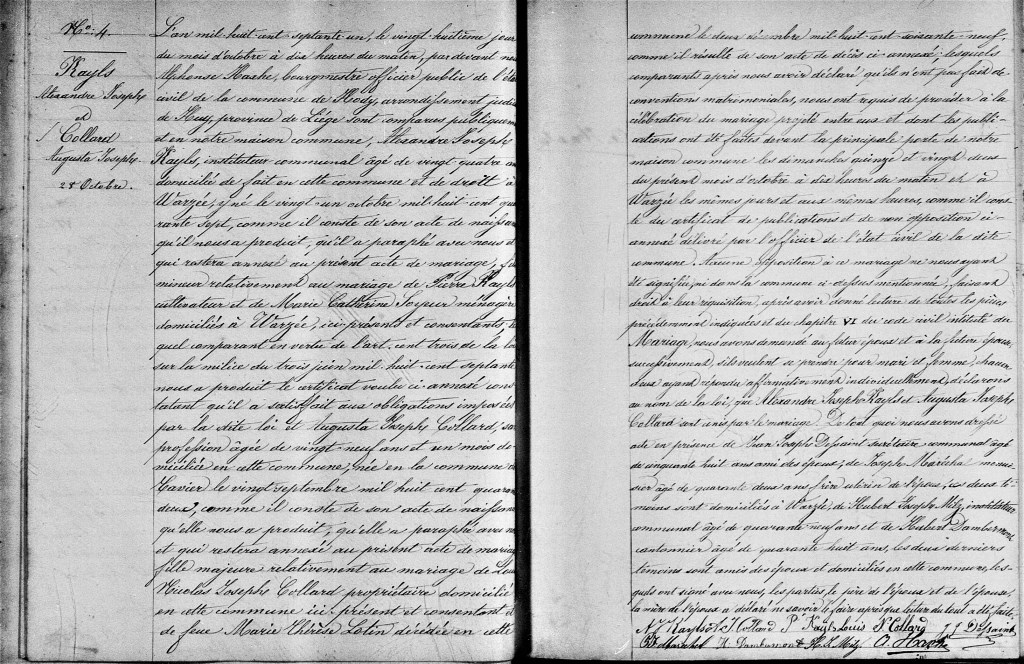 N° 4.
Kayls
Alexandre Joseph
et
Collard
Augusta Joseph
28 Octobre.
L'an mil huit cent septante un, le vingt huitième jour
du mois d'octobre à dix heures du matin, par devant nous
Alphonse Hache, bourgmestre officier public de l'état
civil de la commune de Hody, arrondissement judi
de Huy, province de Liége sont comparus publiquement
et en notre maison commune, Alexandre Joseph
Kayls, instituteur communal âgé de vingt quatre an
domicilié de fait en cette commune et de droit à
Warzée, y né le vingt un octobre mil huit cent qua
rante sept, comme il conste de son acte de naissan
qu'il nous a produit, qu'il a paraphé avec nous et
qui restera annexé au présent acte de mariage, fils
mineur relativement au mariage de Pierre Kayls
cultivateur et de Marie Catherine ménagère
domiciliés à Warzée, ici présents et consentants, le
quel comparant en vertu de l'art. cent trois de la loi
sur la milice du trois juin mil huit cent septante
nous a produit le certificat voulu ci-annexé cons
tatant qu'il a satisfait aux obligations imposées
par la dite loi et Augusta Joseph Collard, sans
profession âgée de vingt-neuf ans et un mois do
miciliée en cette commune, née en la commune de
Xavier le vingt septembre mil huit cent quaran
deux, comme il conste de son acte de naissan
qu'elle nous a produit, qu'elle a paraphé avec no
et qui restera annexé au présent acte de mariage
fille majeure relativement au mariage de Lou
Nicolas Joseph Collard propriétaire domicilié
en cette commune ici présent et consentant et
de feue Marie Thérèse Lotin décédée en cette
commune le deux décembre mil huit cent soixante neuf,
comme il résulte de son acte de décès ci-annexé; lesquels
comparants après nous avoir déclaré qu'ils n'ont pas fait de
conventions matrimoniales, nous ont requis de procéder à la
célébration du mariage projeté entre eux et dont les publi-
cations ont été faites devant la principale porte de notre
maison commune les dimanches quinze et vingt deux
du présent mois d'octobre à dix heures du matin et à
Warzée les mêmes jours et aux mêmes heures, comme il cons
te du certificat de publications et de non opposition ci-
annexé délivré par l'officier de l'état civil de la dite
commune. Aucune opposition à ce mariage ne nous ayant
été signifiée ni dans la commune ci-dessus mentionnée, faisant
droit à leur réquisition, après avoir donné lecture de toutes les pièces
précédemment indiquées et du chapitre VI du code civil intitulé du
Mariage, nous avons demandé au futur époux et à la future épouse,
successivement, s'ils veulent se prendre pour mari et femme chacun
d'eux ayant répondu affirmativement individuellement, déclarons
au nom de la loi, que Alexandre Joseph Kayls et Augusta Joseph
Collard sont unis par le mariage. De tout quoi nous avons dressé
acte en présence de Jean Joseph Dessaint secrétaire communal âgé
de cinquante huit ans ami des époux; de Joseph Maréchal menui-
sier âgé de quarante deux ans frère utérin de l'époux; ces deux té-
moins sont domiciliés à Warzée, de Hubert Joseph Metz, instituteur
communal âgé de quarante neuf ans et de Hubert Dambermont
cantonnier âgé de quarante huit ans, les deux derniers
témoins sont amis des époux et domiciliés en cette commune, les-
quels ont signé avec nous, les parties, le père de l'époux et de l'épouse,
la mère de l'époux a déclaré ne savoir le faire après que lecture du tout a été faite.
A J Kayls A J Collard P Kayls Louis N Collard J J Dessaint
J Maréchal H Dambermont H. J. Metz A Hache